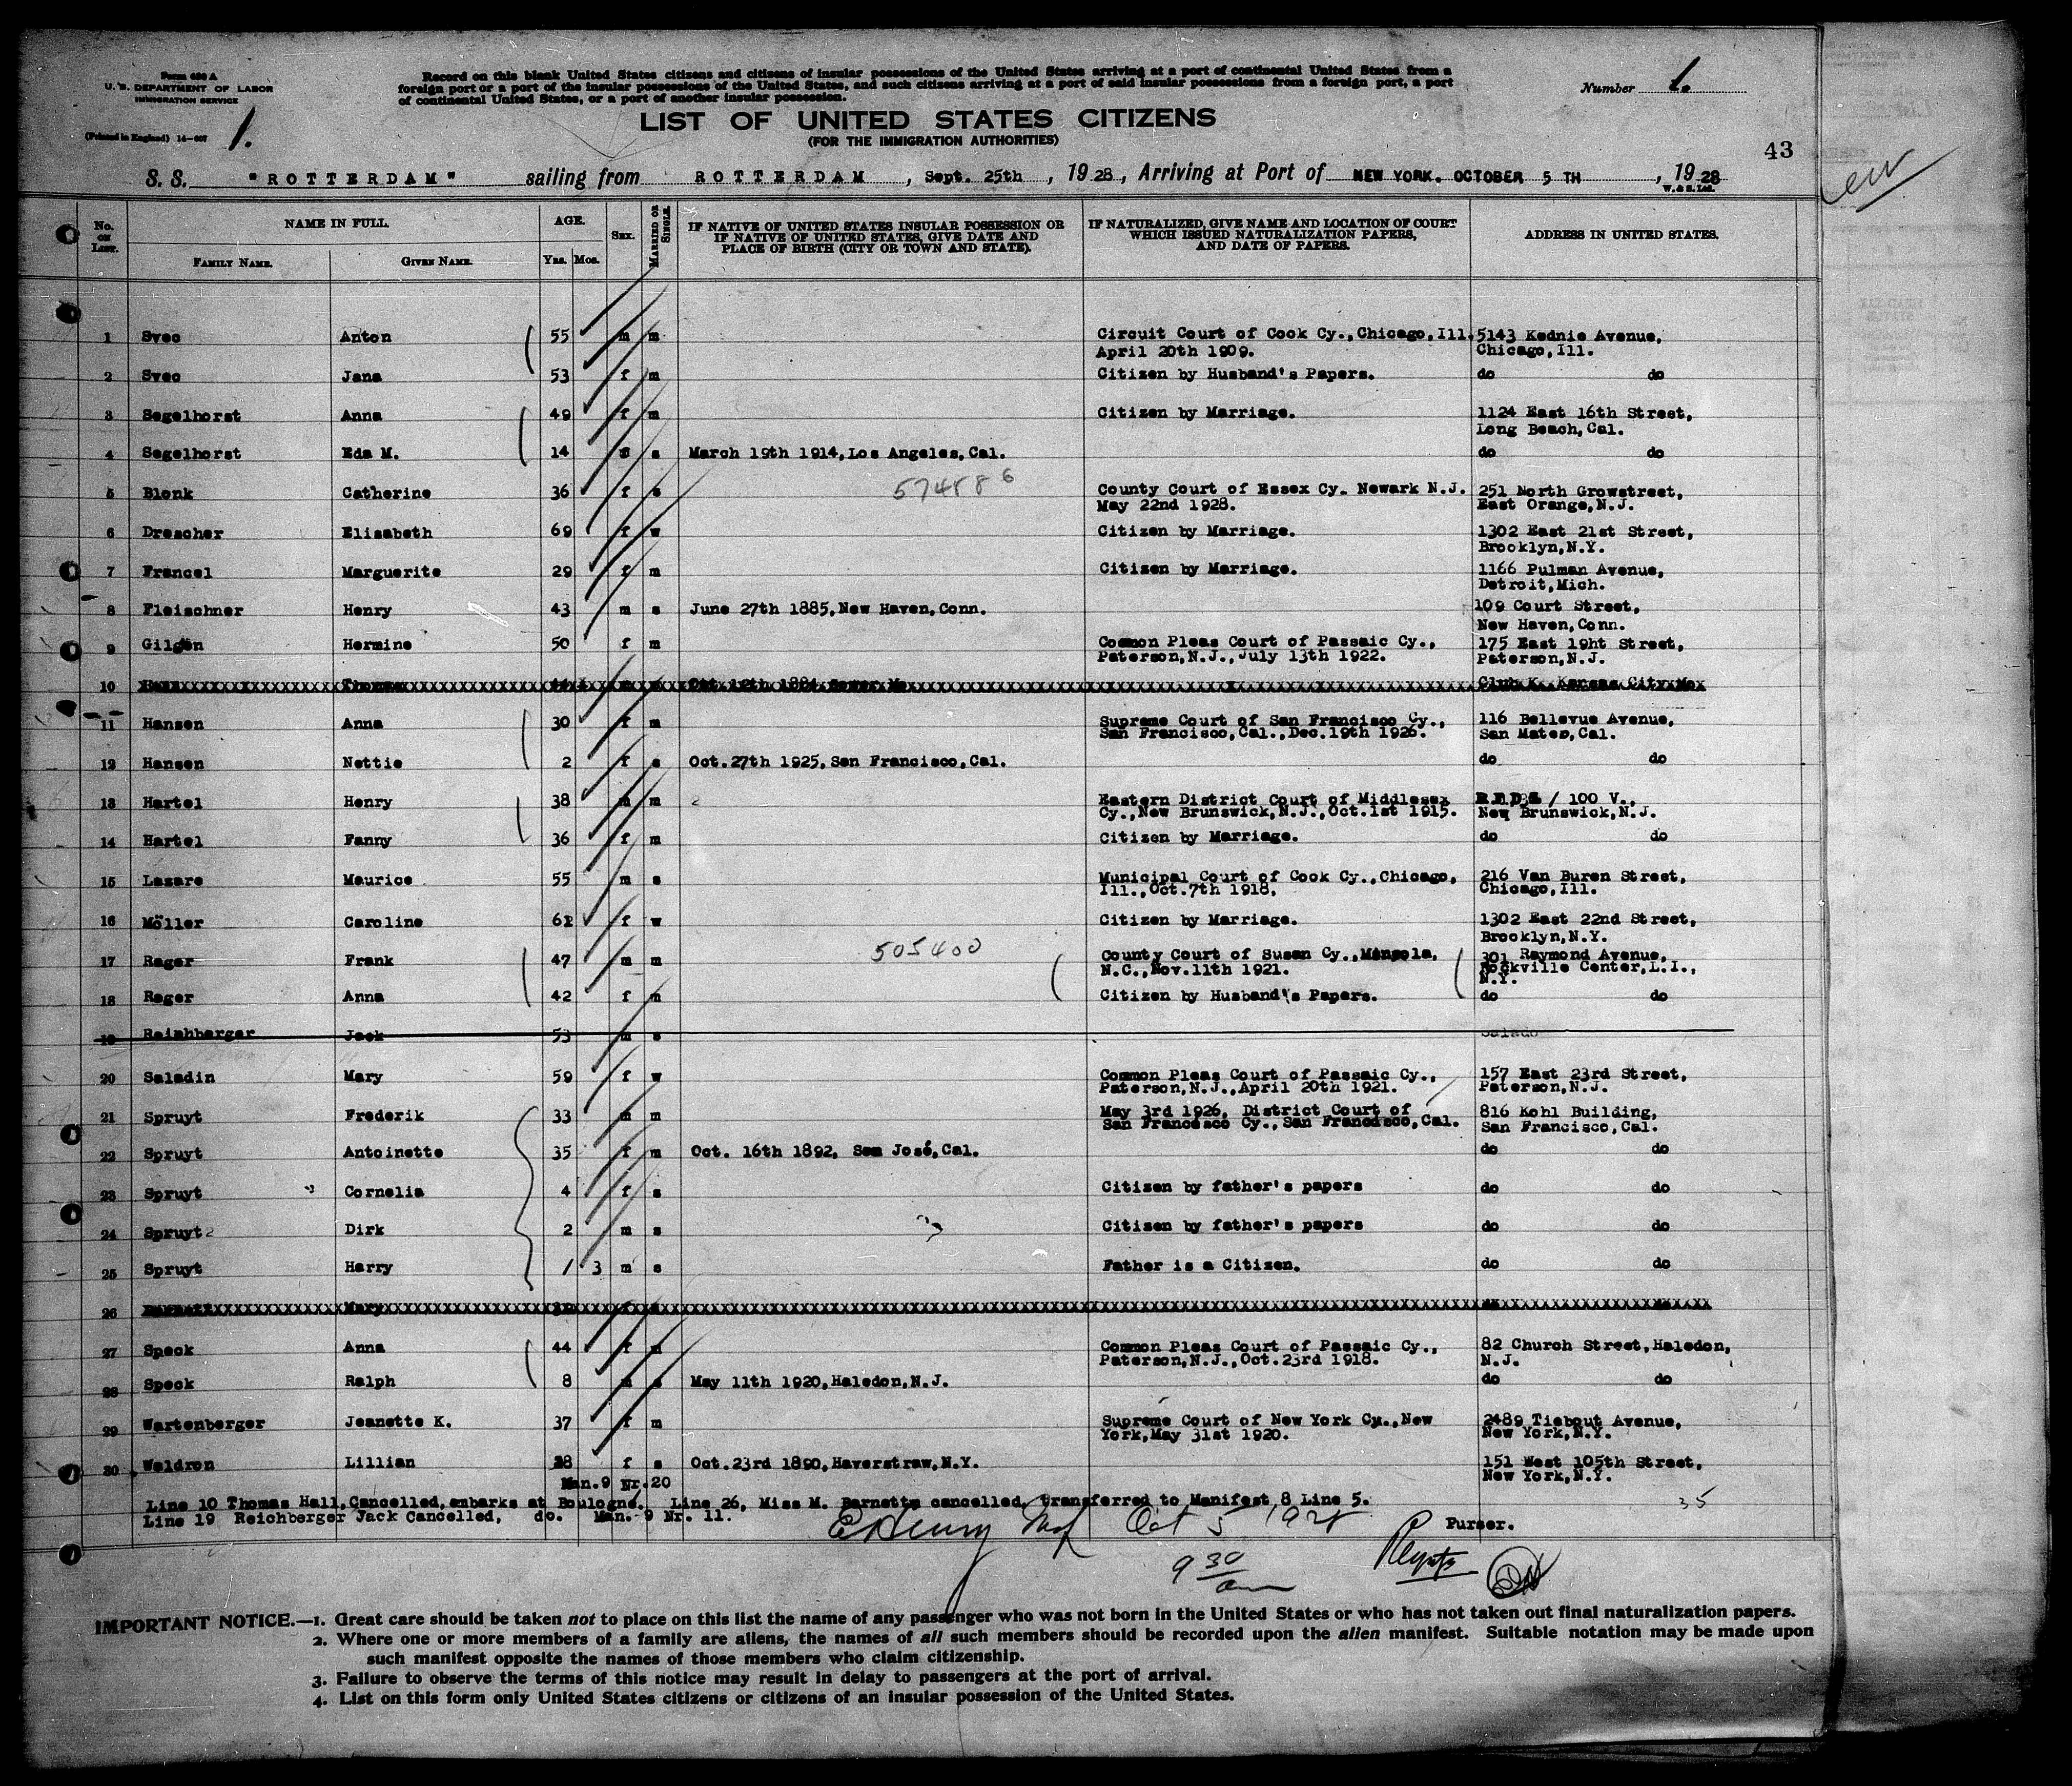 Form 630 A
U. S. DEPARTMENT OF LABOR
IMMIGRATION SERVICE
(Printed in England) 14-607
1.
Record on this blank United States citizens and citizens of insular possessions of the United States arriving at a port of continental United States from a
foreign port or a port of the insular possessions of the United States, and such citizens arriving at a port of said insular possessions from a foreign port, a port
of continental United States, or a port of another insular possession.
Number 1.
LIST OF UNITED STATES CITIZENS
(FOR THE IMMIGRATION AUTHORITIES)
43
S. S. "ROTTERDAM" sailing from ROTTERDAM, Sept. 25th, 1928, Arriving at Port of NEW YORK. OCTOBER 5 TH, 1928
W. & S. Ltd.
No. ON LIST. NAME IN FULL. FAMILY NAME. GIVEN NAME. AGE. Yrs. Mos. SEX. MARRIED OR SINGLE. IF NATIVE OF UNITED STATES INSULAR POSSESSION OR IF NATIVE OF UNITED STATES, GIVE DATE AND PLACE OF BIRTH (CITY OR TOWN AND STATE). IF NATURALIZED, GIVE NAME AND LOCATION OF COURT WHICH ISSUED NATURALIZATION PAPERS, AND DATE OF PAPERS. ADDRESS IN UNITED STATES.
1 Svec Anton 55 m m Circuit Court of Cook Cy., Chicago, Ill. 5143 Kednie Avenue,
April 20th 1909. Chicago, Ill.
2 Svec Jana 53 f m Citizen by Husband's Papers. do do
3 Segelhorst Anna 49 f m Citizen by Marriage. 1124 East 16th Street,
Long Beach, Cal.
4 Segelhorst Eda M. 14 f s March 19th 1914, Los Angeles, Cal. do do
5 Blonk Catherine 36 f s 574886 County Court of Essex Cy. Newark N.J. 251 North Growstreet,
May 22nd 1928. East Orange, N.J.
6 Drescher Elisabeth 69 f w Citizen by Marriage. 1302 East 21st Street,
Brooklyn, N.Y.
7 Francel Marguerite 29 f m Citizen by Marriage. 1166 Pulman Avenue,
Detroit, Mich.
8 Fleischner Henry 43 m s June 27th 1885, New Haven, Conn. 109 Court Street,
New Haven, Conn.
9 Gilgen Hermine 50 f m Common Pleas Court of Passaic Cy., 175 East 19ht Street,
Paterson, N.J., July 13th 1922. Paterson, N.J.
10 Thomas Oct. 12th 1884 Club K. Kansas City Mo
11 Hansen Anna 30 f m Supreme Court of San Francisco Cy., 116 Bellevue Avenue,
San Francisco, Cal., Dec. 19th 1926. San Mateo, Cal.
12 Hansen Nettie 2 f s Oct. 27th 1925, San Francisco, Cal. do do
13 Hartel Henry 38 m m Eastern District Court of Middlesex / 100 V.,
Cy., New Brunswick, N.J., Oct. 1st 1915. New Brunswick, N.J.
14 Hartel Fanny 36 f m Citizen by Marriage. do do
15 Lazare Maurice 55 m s Municipal Court of Cook Cy., Chicago, 216 Van Buren Street,
Ill., Oct. 7th 1918. Chicago, Ill.
16 Möller Caroline 62 f w Citizen by Marriage. 1302 East 22nd Street,
Brooklyn, N.Y.
17 Rager Frank 47 m m 505400 County Court of Susan Cy., Mineola, 301 Raymond Avenue,
N.C., Nov. 11th 1921. Rockville Center, L.I.,
N.Y.
18 Rager Anna 42 f m Citizen by Husband's Papers. do do
19 Reichberger Jack 53 m s
20 Saladin Mary 59 f w Common Pleas Court of Passaic Cy., 157 East 23rd Street,
Paterson, N.J., April 20th 1921. Paterson, N.J.
21 Spruyt Frederik 33 m m May 3rd 1926, District Court of 816 Kohl Building,
San Francesco Cy., San Francesco, Cal. San Francisco, Cal.
22 Spruyt Antoinette 35 f m Oct. 16th 1892, San José, Cal. do do
23 Spruyt Cornelia 4 f s Citizen by father's papers do do
24 Spruyt Dirk 2 m s Citizen by father's papers do do
25 Spruyt Harry / 3 m s Father is a Citizen. do do
26 Barnett Mary
27 Speck Anna 44 f m Common Pleas Court of Passaic Cy., 82 Church Street, Haledon,
Paterson, N.J., Oct. 23rd 1918. N.J.
28 Speck Ralph 8 m s May 11th 1920, Haledon, N.J. do do
29 Wartenberger Jeanette K. 37 f m Supreme Court of New York Cy., New 2489 Tiebout Avenue,
York, May 31st 1920. New York, N.Y.
30 Waldron Lillian 38 f s Oct. 23rd 1890, Haverstraw, N.Y. 151 West 105th Street,
New York, N.Y.
Man. 9 Nr. 20
Line 10 Thomas Hall, Cancelled, embarks at Boulogne. Line 26, Miss M. Barnett cancelled, transferred to Manifest 8 Line 5.
Line 19 Reichberger Jack Cancelled, do. Man. 9 Nr. 11.
35
Oct 5 1928
Purser.
9 30 am
IMPORTANT NOTICE.—1. Great care should be taken not to place on this list the name of any passenger who was not born in the United States or who has not taken out final naturalization papers.
2. Where one or more members of a family are aliens, the names of all such members should be recorded upon the alien manifest. Suitable notation may be made upon
such manifest opposite the names of those members who claim citizenship.
3. Failure to observe the terms of this notice may result in delay to passengers at the port of arrival.
4. List on this form only United States citizens or citizens of an insular possession of the United States.